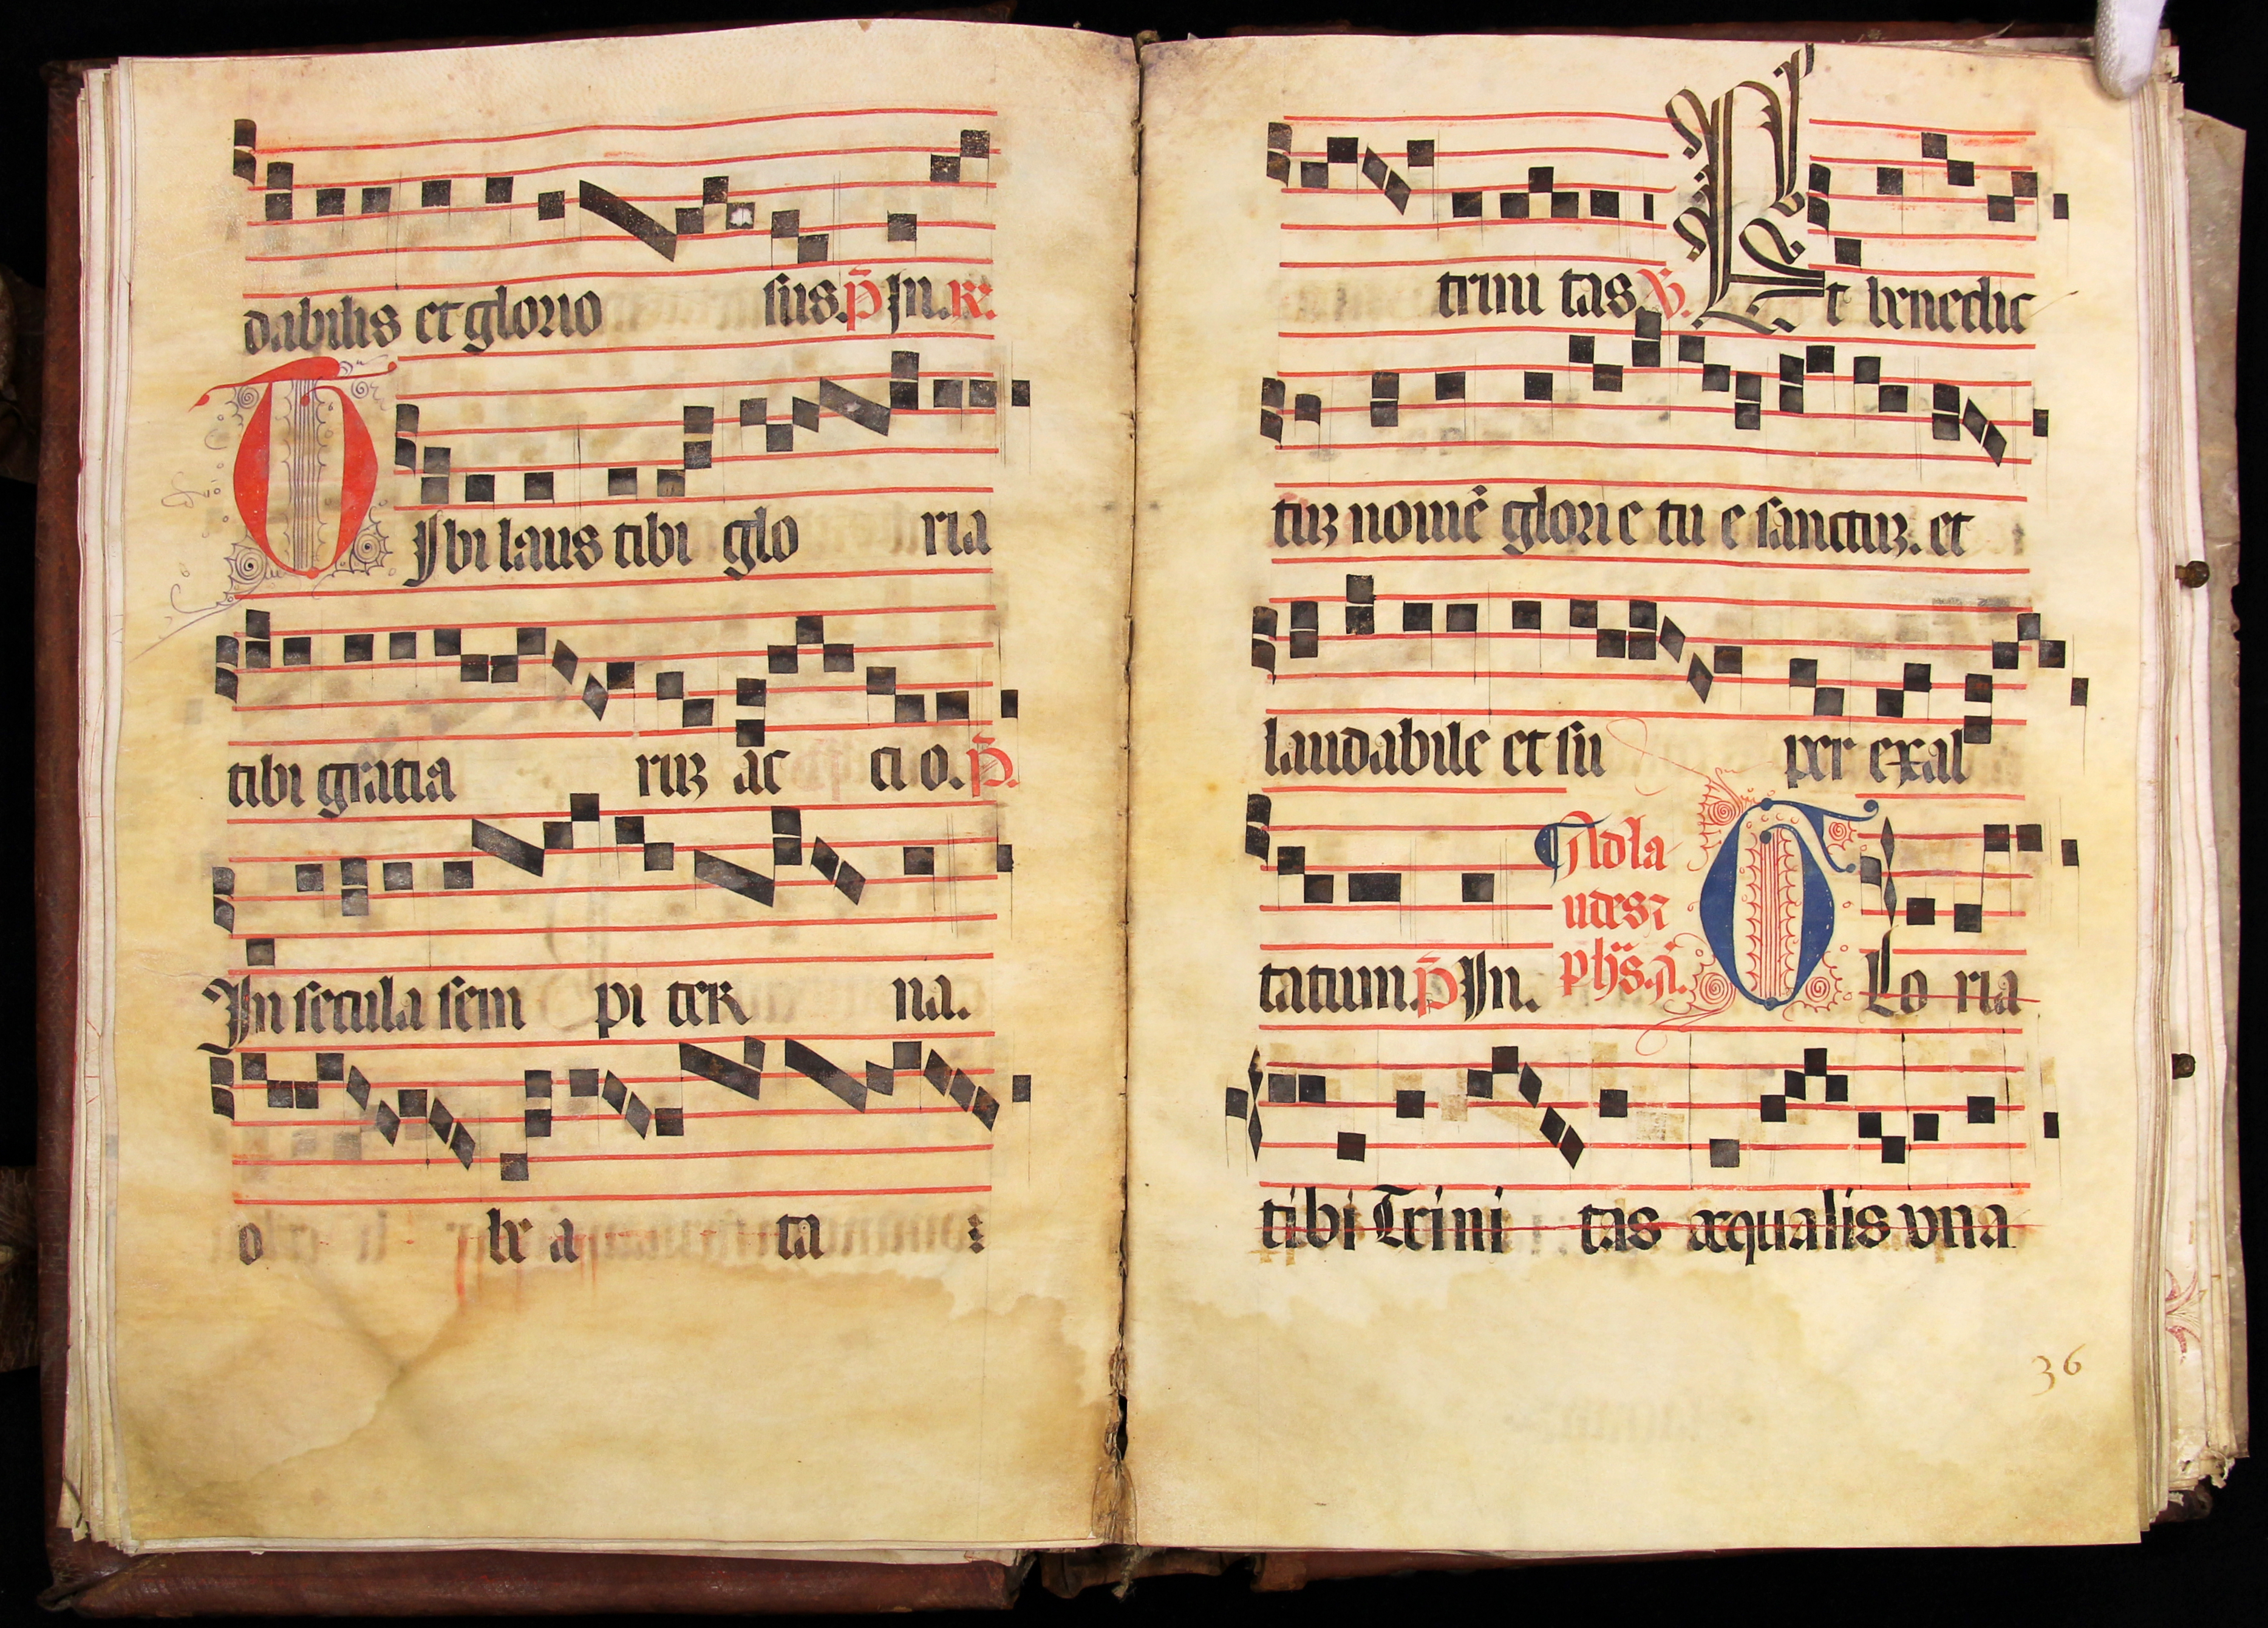 dabilis et glorio sus. p̄ In. R.
TIbi laus tibi glo ria
tibi gratia ruȝ ac ci o. p̄.
In secula sem pi ter na.
o be a ta :
trini tas. V. Et benedic
tuȝ nomē glorie tu e sanctuȝ. et
laudabile et su per exal
tatum. p̄ In. GLo ria
Ad la
udes ⁊
tibi Trini tas æqualis vna
36